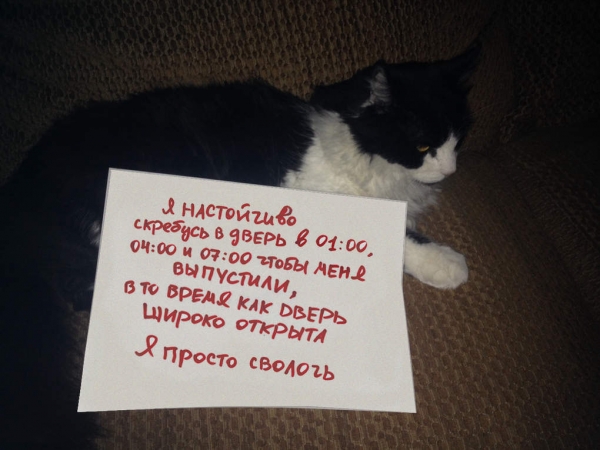 Я НАСТОЙЧИВО
СКРЕБУСЬ В ДВЕРЬ В 01:00,
04:00 И 07:00 ЧТОБЫ МЕНЯ
ВЫПУСТИЛИ,
В ТО ВРЕМЯ КАК ДВЕРЬ
ШИРОКО ОТКРЫТА
Я ПРОСТО СВОЛОЧЬ